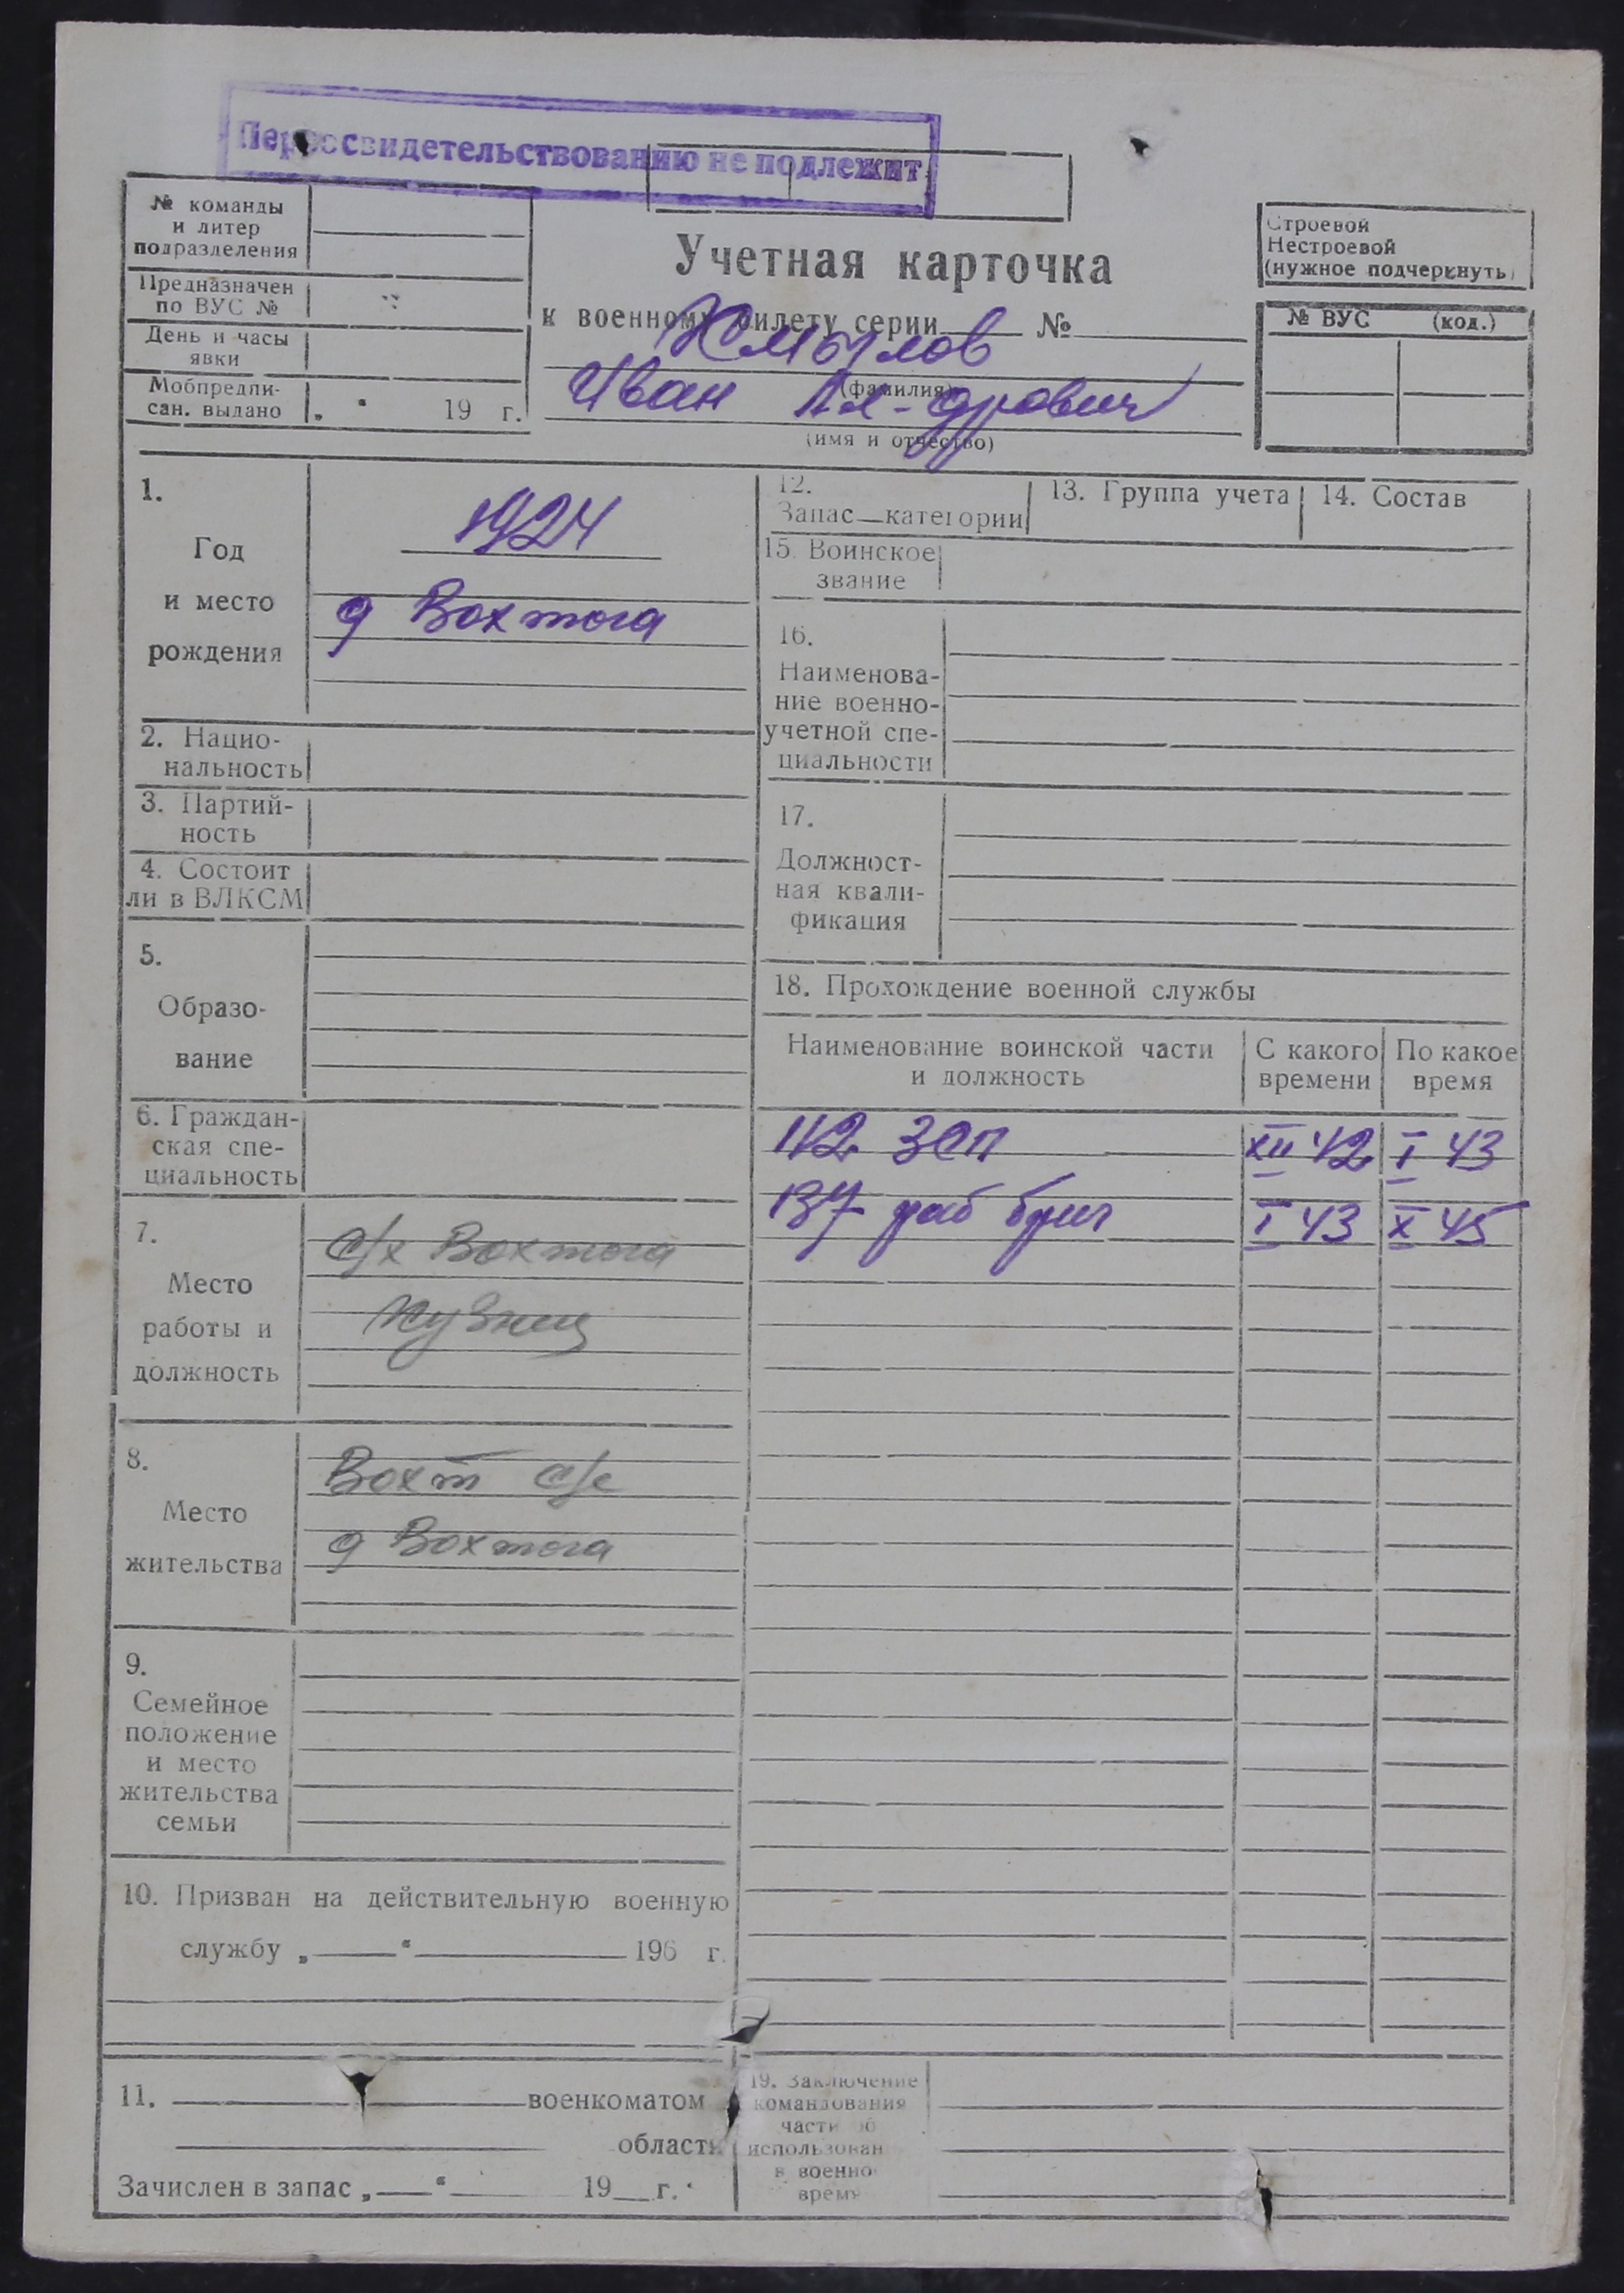 Переосвидетельствованию не подлежит
№ команды
и литер
подразделения
Предназначен
по ВУС №
День и часы
явки
Мобпредпи-
сан. выдано „ “ 19 г.
Учетная карточка
к военному билету серии №
Жмылов
(фамилия)
Иван Ал-дрович
(имя и отчество)
Строевой
Нестроевой
(нужное подчеркнуть)
№ ВУС (код.)
1.
Год
и место
рождения
1924
д Вохтога
2. Нацио-
нальность
3. Партий-
ность
4. Состоит
ли в ВЛКСМ
5.
Образо-
вание
6. Граждан-
ская спе-
циальность
7.
Место
работы и
должность
с/х Вохтога
Кузнец
8.
Место
жительства
Вохт с/с
д Вохтога
9.
Семейное
положение
и место
жительства
семьи
10. Призван на действительную военную
службу „ “ 196 г.
11. военкоматом
области
Зачислен в запас „ “ 19 г.
12.
Запас—категории
13. Группа учета
14. Состав
15. Воинское
звание
16.
Наименова-
ние военно-
учетной спе-
циальности
17.
Должност-
ная квали-
фикация
18. Прохождение военной службы
Наименование воинской части
и должность
С какого
времени
По какое
время
112 ЗСП XII 42 I 43
137 раб бриг I 43 X 45
19. Заключение
командования
части об
использован
в военно
время